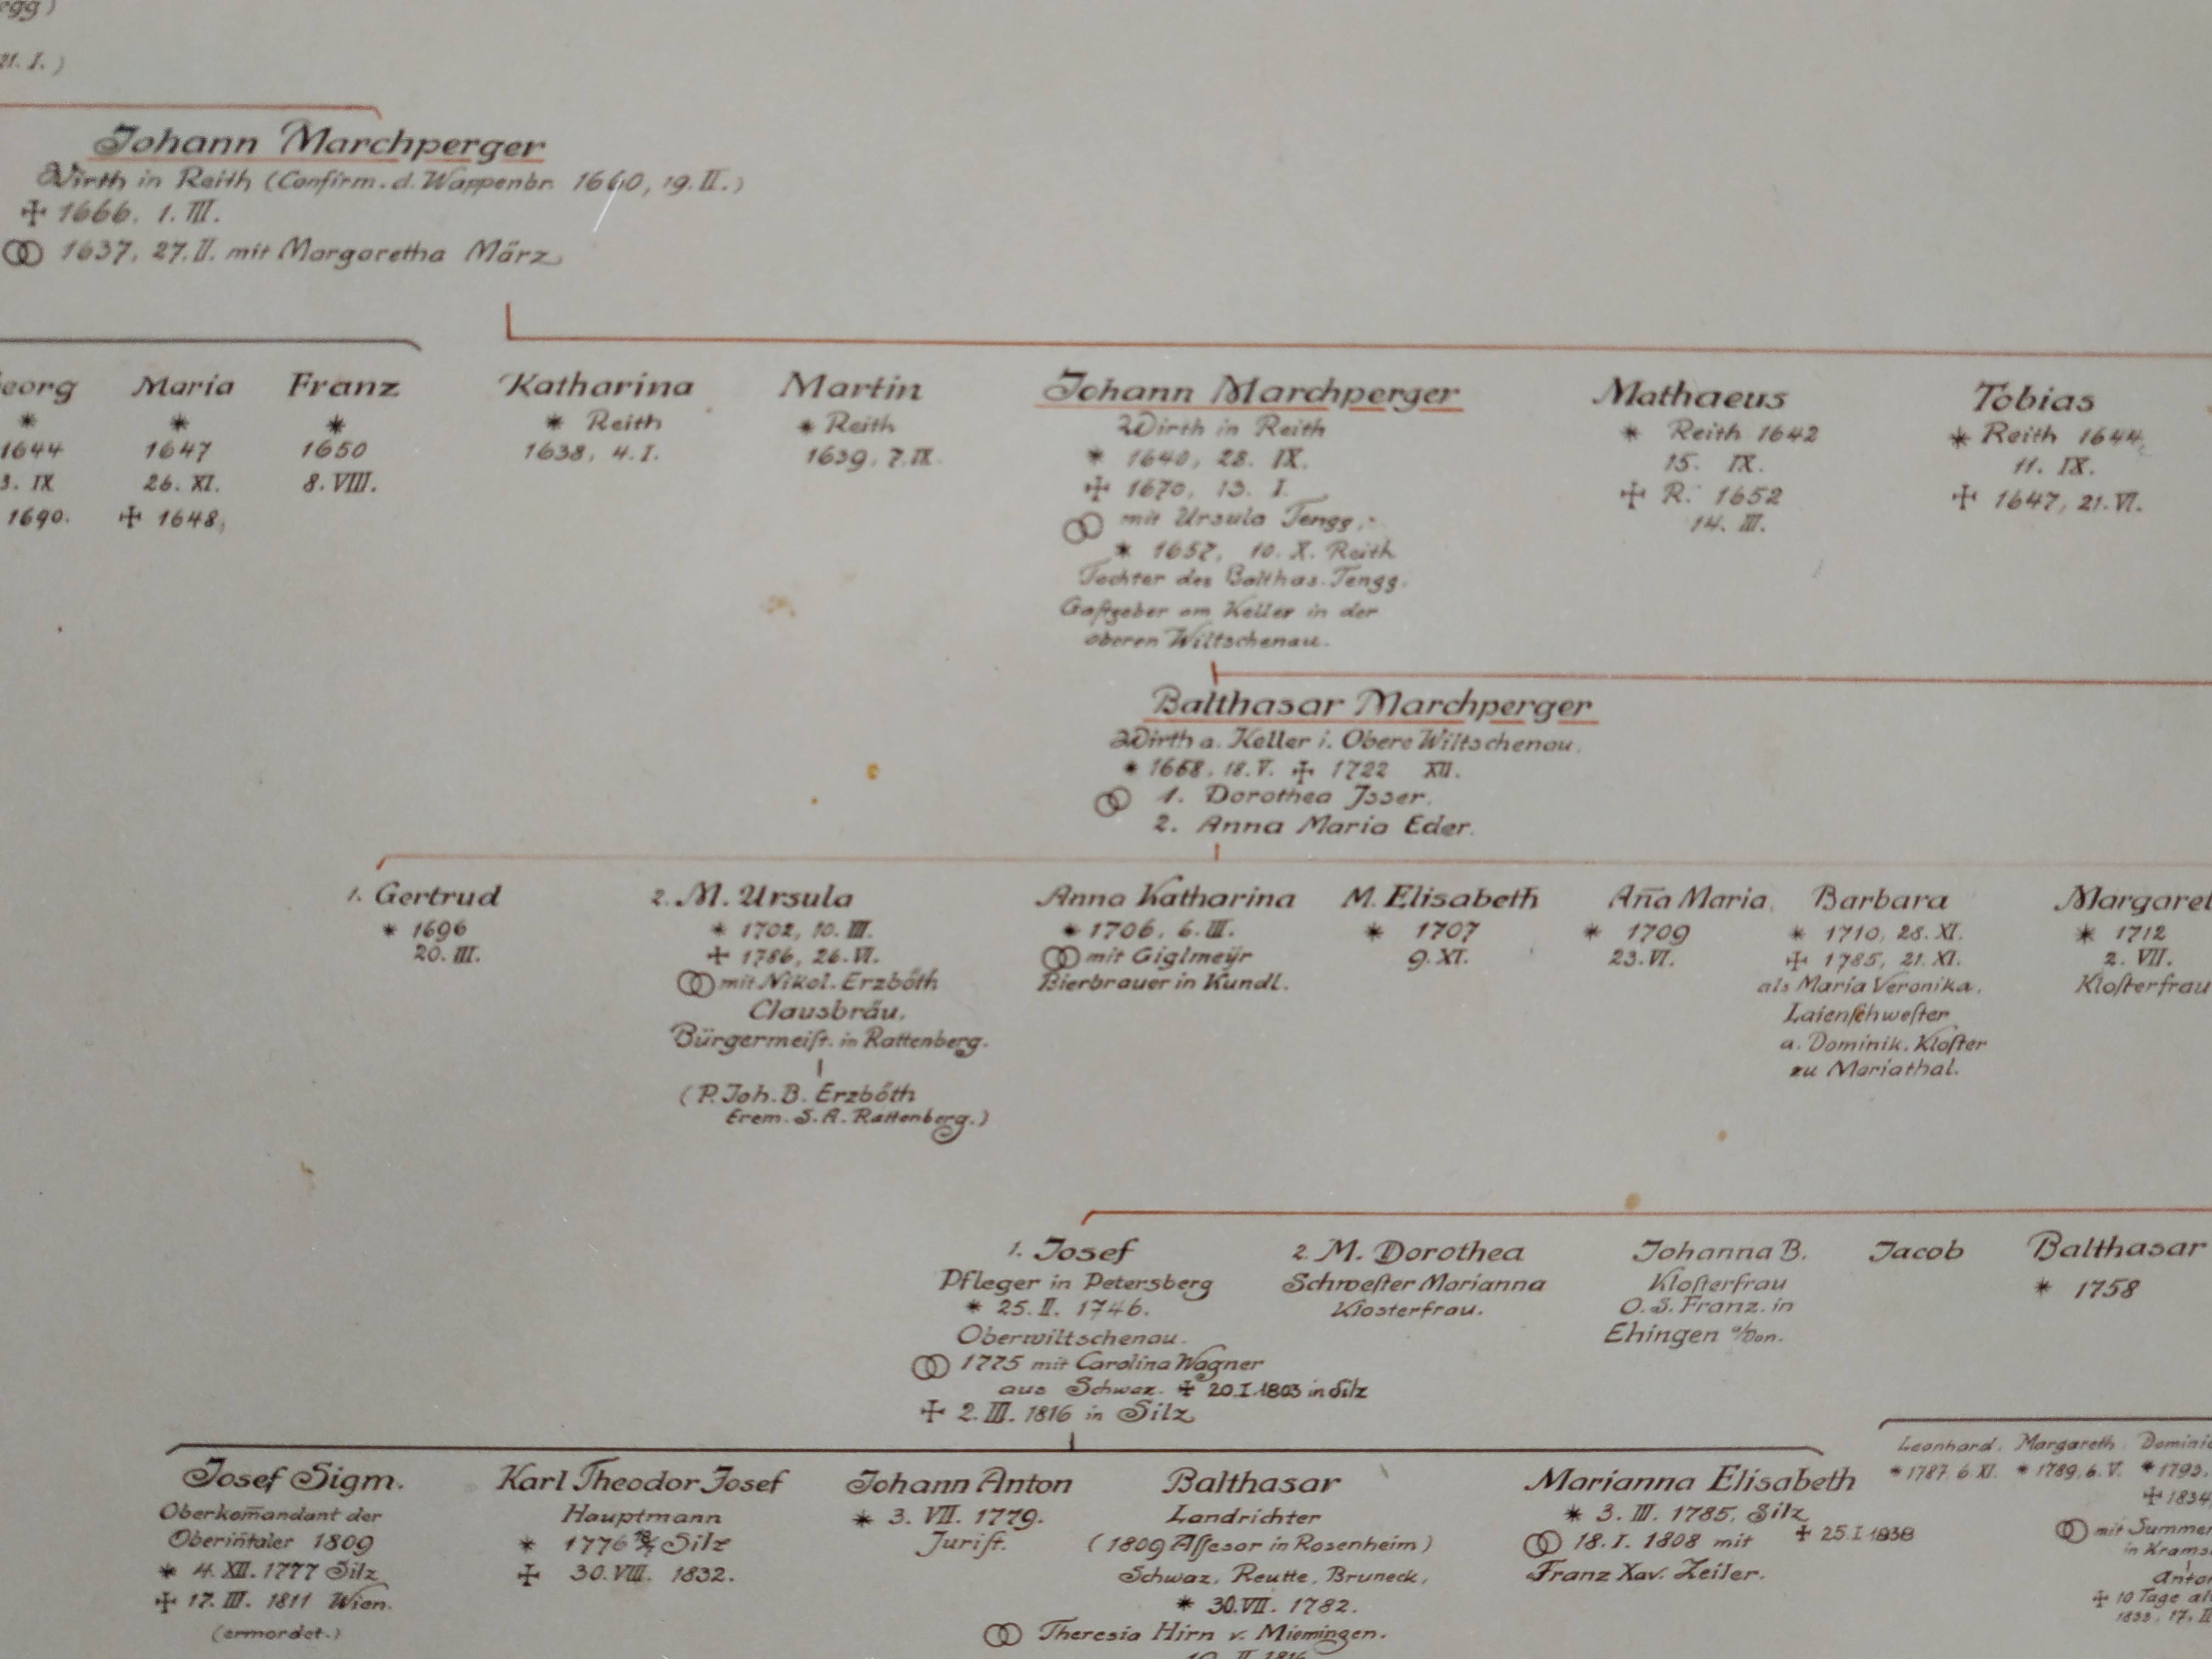 egg)
21. I.)
Johann Marchperger
Wirth in Reith (Confirm. d. Wappenbr. 1660, 19. II.)
✠ 1666. 1. III.
⚭ 1637, 27. II. mit Margaretha März
eorg
*
1644
3. IX
1690.
Maria
*
1647
26. XI.
✠ 1648,
Franz
*
1650
8. VIII.
Katharina
* Reith
1638, 4. I.
Martin
* Reith
1639, 7. IX.
Johann Marchperger
Wirth in Reith
* 1640, 28. IX.
✠ 1670, 13. I.
⚭ mit Ursula Tengg,
* 1657, 10. X. Reith
Tochter des Balthas. Tengg.
Gaſtgeber am Keller in der
oberen Wiltschenau.
Mathaeus
* Reith 1642
15. IX.
✠ R. 1652
14. III.
Tobias
* Reith 1644,
11. IX.
✠ 1647, 21. VI.
Balthasar Marchperger
Wirth a. Keller i. Obere Wiltschenau.
* 1668, 18. V. ✠ 1722 XII.
⚭ 1. Dorothea Isser.
2. Anna Maria Eder.
1. Gertrud
* 1696
20. III.
2. M. Ursula
* 1702, 10. III.
✠ 1786, 26. VI.
⚭ mit Nikol. Erzböth
Clausbräu.
Bürgermeiſt. in Rattenberg.
(P. Joh. B. Erzböth
Erem. S. A. Rattenberg.)
Anna Katharina
* 1706, 6. III.
⚭ mit Giglmeÿr
Bierbrauer in Kundl.
M. Elisabeth
* 1707
9. XI.
An̄a Maria
* 1709
23. VI.
Barbara
* 1710, 28. XI.
✠ 1785, 21. XI.
als Maria Veronika,
Laienſchweſter
a. Dominik. Kloſter
zu Mariathal.
Margaret
* 1712
2. VII.
Kloſterfrau
1. Josef
Pfleger in Petersberg
* 25. II. 1746.
Oberwiltschenau.
⚭ 1775 mit Carolina Wagner
aus Schwaz. ✠ 20. I. 1803 in Silz
✠ 2. III. 1816 in Silz
2. M. Dorothea
Schweſter Marianna
Klosterfrau.
Johanna B.
Kloſterfrau
O. S. Franz. in
Ehingen a/Don.
Jacob
Balthasar
* 1758
Josef Sigm.
Oberkom̄andant der
Oberin̄taler 1809
* 4. XII. 1777 Silz
✠ 17. III. 1811 Wien.
(ermordet.)
Karl Theodor Josef
Hauptmann
* 1776 Silz
✠ 30. VIII. 1832.
Johann Anton
* 3. VII. 1779.
Juriſt.
Balthasar
Landrichter
(1809 Aſſesor in Rosenheim)
Schwaz, Reutte, Bruneck,
* 30. VII. 1782.
⚭ Theresia Hirn v. Miemingen.
Marianna Elisabeth
* 3. III. 1785, Silz
⚭ 18. I. 1808 mit ✠ 25. I. 1838
Franz Xav. Zeiler.
Leonhard.
* 1787, 6. XI.
Margareth.
* 1789, 6. V.
Dominic
* 1793.
✠ 1834,
⚭ mit Summer
in Krams
Anton
✠ 10 Tage alt
1833, 17. II